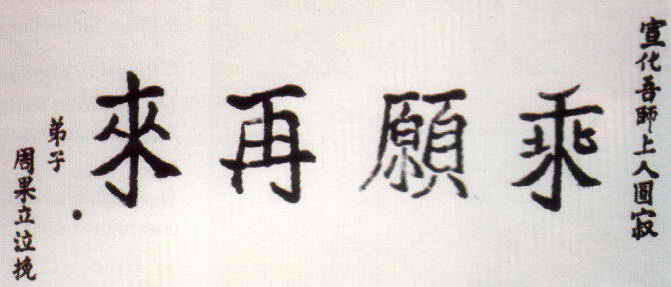 宣化吾師上人圓寂
乘願再來
弟子
周果立泣挽